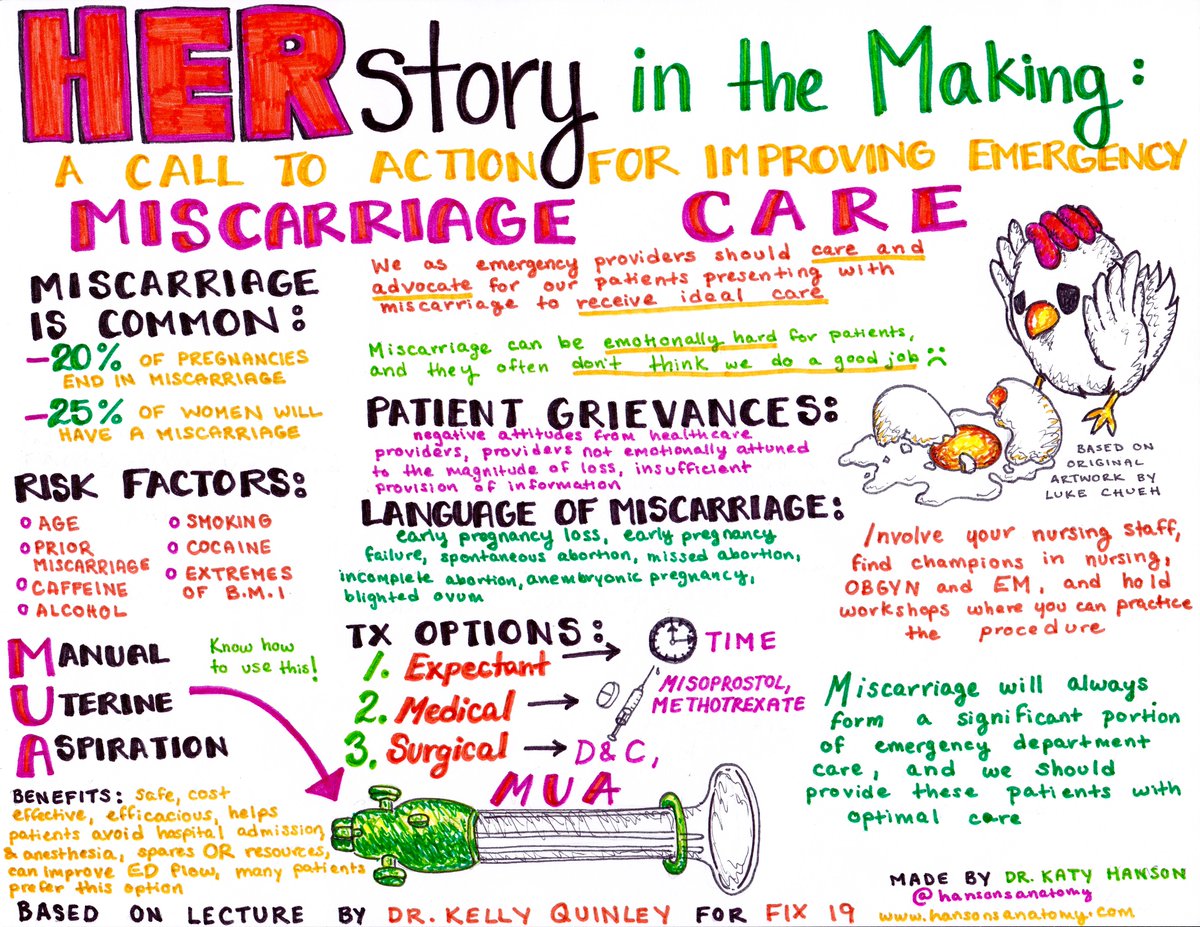 HERstory in the Making:
A CALL TO ACTION FOR IMPROVING EMERGENCY
MISCARRIAGE CARE
MISCARRIAGE
IS COMMON:
-20% OF PREGNANCIES
END IN MISCARRIAGE
-25% OF WOMEN WILL
HAVE A MISCARRIAGE
RISK FACTORS:
o AGE
o PRIOR
MISCARRIAGE
o CAFFEINE
o ALCOHOL
o SMOKING
o COCAINE
o EXTREMES
OF B.M.I
MANUAL
UTERINE
ASPIRATION
Know how
to use this!
BENEFITS: safe, cost
effective, efficacious, helps
patients avoid hospital admission,
& anesthesia, spares OR resources,
can improve ED flow, many patients
prefer this option
We as emergency providers should care and
advocate for our patients presenting with
miscarriage to receive ideal care
Miscarriage can be emotionally hard for patients,
and they often don't think we do a good job :(
PATIENT GRIEVANCES:
negative attitudes from healthcare
providers, providers not emotionally attuned
to the magnitude of loss, insufficient
provision of information
LANGUAGE OF MISCARRIAGE:
early pregnancy loss, early pregnancy
failure, spontaneous abortion, missed abortion,
incomplete abortion, anembryonic pregnancy,
blighted ovum
TX OPTIONS:
1. Expectant → TIME
2. Medical → MISOPROSTOL,
METHOTREXATE
3. Surgical → D&C,
MUA
BASED ON
ORIGINAL
ARTWORK BY
LUKE CHUEH
Involve your nursing staff,
find champions in nursing,
OBGYN and EM, and hold
workshops where you can practice
the procedure
Miscarriage will always
form a significant portion
of emergency department
care, and we should
provide these patients with
optimal care
MADE BY DR. KATY HANSON
@hansonsanatomy
www.hansonsanatomy.com
BASED ON LECTURE BY DR. KELLY QUINLEY FOR FIX 19